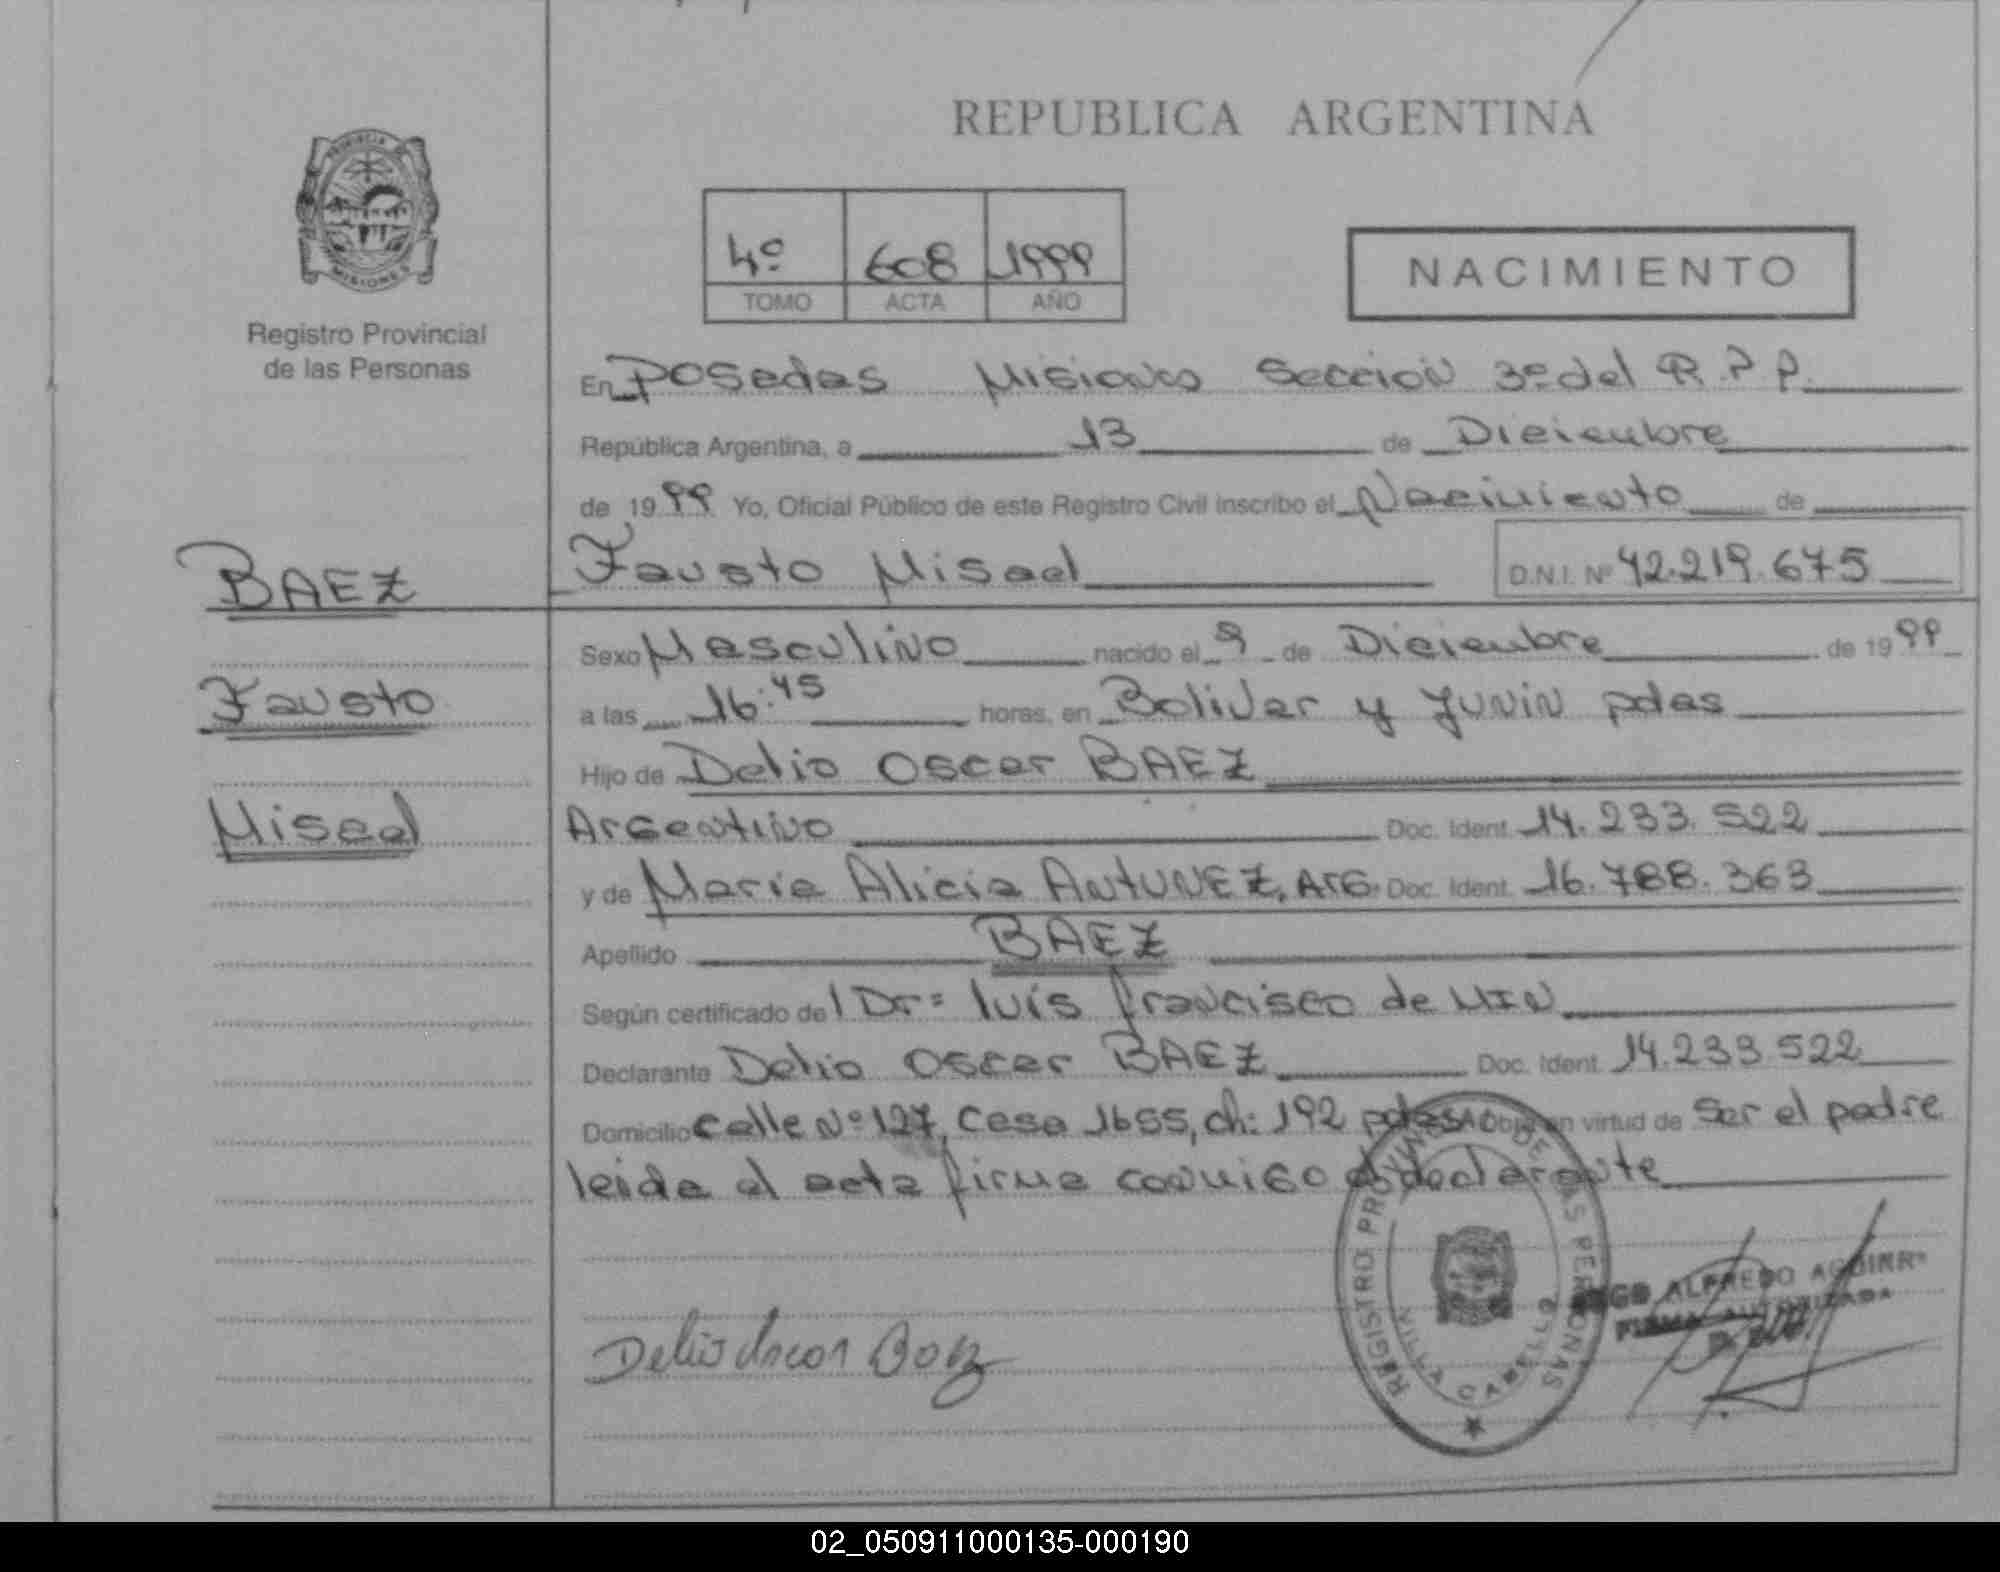 REPUBLICA ARGENTINA
PROVINCIA
MISIONES
Registro Provincial
de las Personas
4º 608 1999
TOMO ACTA AÑO
NACIMIENTO
En Posadas Misiones Sección 3º del R.P.P.
República Argentina, a 13 de Diciembre
de 1999 Yo, Oficial Público de este Registro Civil inscribo el Nacimiento de
Fausto Misael D.N.I. Nº 42.219.675
BAEZ
Fausto
Misael
Sexo Masculino nacido el 9 de Diciembre de 1999
a las 16:45 horas, en Bolivar y Junin pdas
Hijo de Delio Oscar BAEZ
Argentino Doc. Ident. 14.233.522
y de Maria Alicia ANTUNEZ, ARG. Doc. Ident. 16.788.363
Apellido BAEZ
Según certificado del Dr= luis francisco de MIN
Declarante Delio Oscar BAEZ Doc. Ident. 14.233.522
Domicilio calle Nº 127, casa 1655, ch: 192 pdas en virtud de ser el padre
leida el acta firma conmigo el declarante
Delio Oscar Baez
REGISTRO PROVINCIAL DE LAS PERSONAS
VILLA CABELLO
ALFREDO AGUIRRE
FIRMA AUTORIZADA
02_050911000135-000190